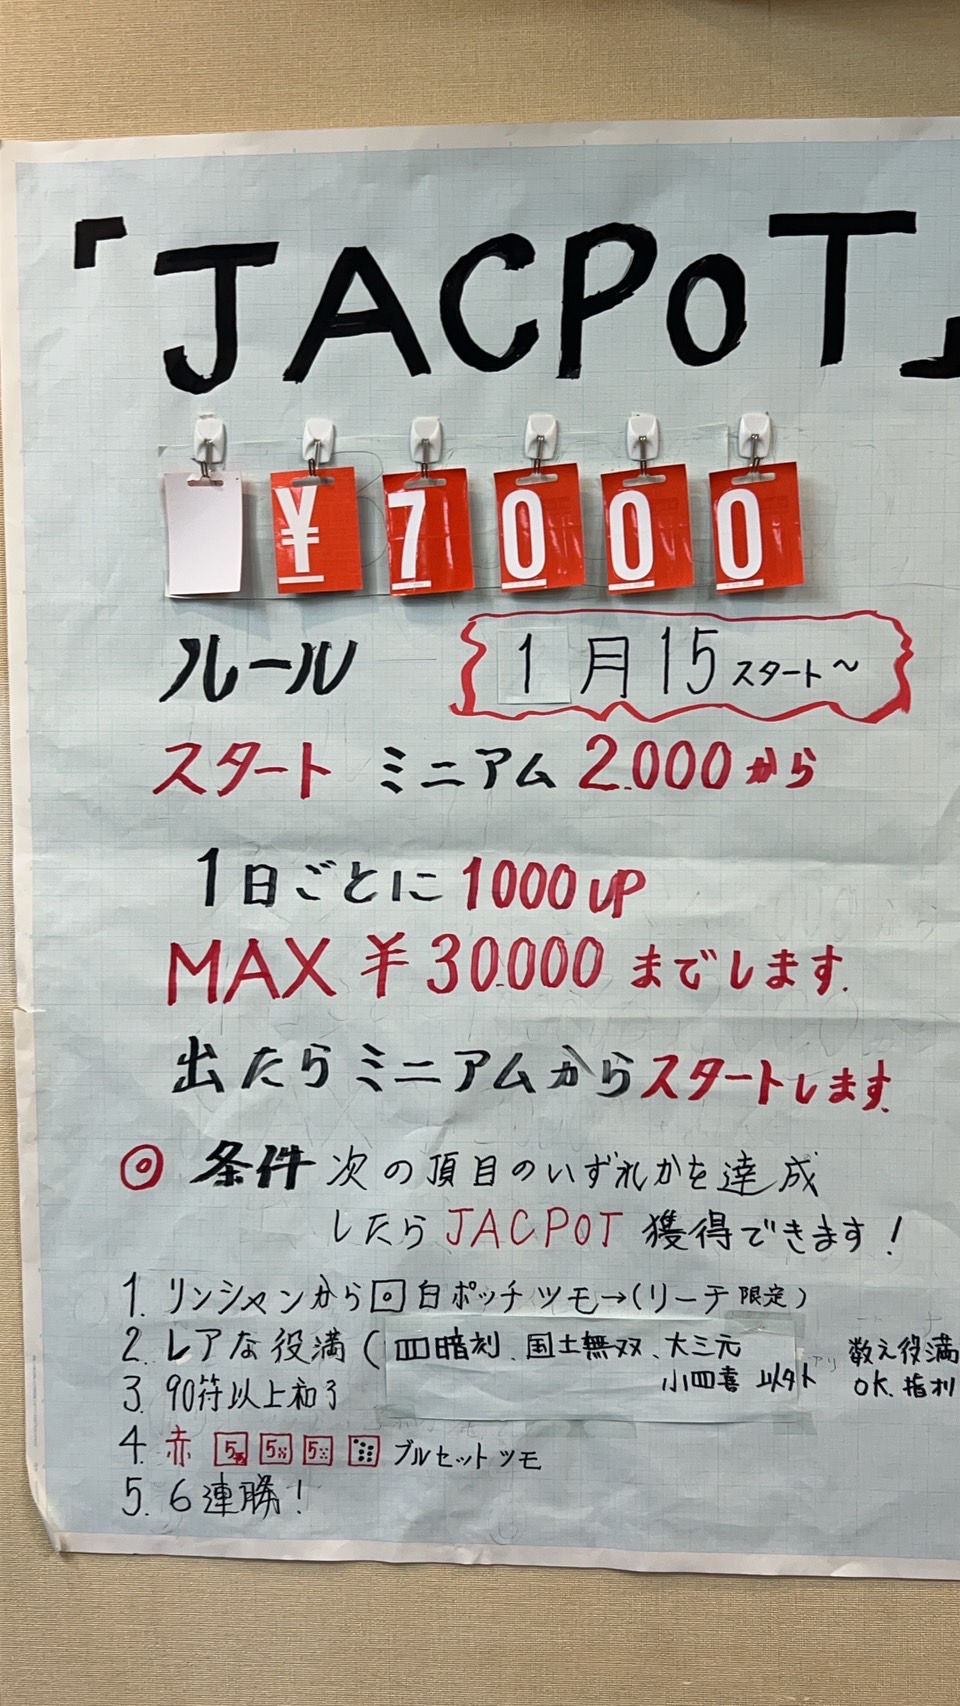 「JACPOT」
¥7000
ルール
1月15スタート〜
スタート ミニアム 2.000から
1日ごとに1000UP
MAX ¥30.000までします.
出たらミニアムからスタートします.
◎ 条件 次の頂目のいずれかを達成
したらJACPOT 獲得できます!
1. リンシャンから白ポッチツモ→(リーチ限定)
2. レアな役満(四暗刻、国士無双、大三元
小四喜 以外 アリ 数え役満
OK.
3. 90符以上和了
4. 赤 5 5 5 ブルセットツモ
5. 6連勝!